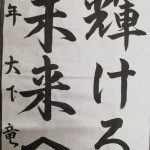 輝ける
未来へ
年 大 竜